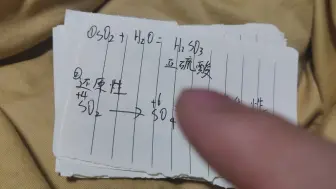 ①SO₂ + H₂O = H₂SO₃
亚硫酸
②还原性 性
+4 +6
SO₂ → SO₄